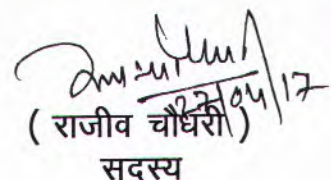 27/04/17
( राजीव चौधरी )
सदस्य